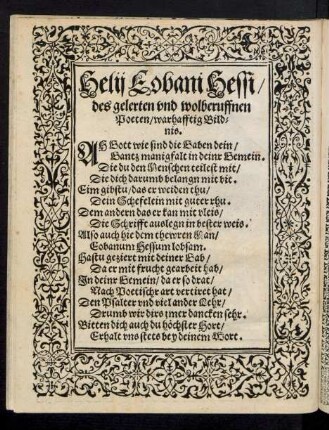 Helij Eobani Hessi/
des gelerten vnd wolberuffnen
Poeten/warhafftig Bild-
nis.
Ah Gott wie sind die Gaben dein/
Gantz manigfalt in deinr Gemein.
Die du den Menschen teilest mit/
Die dich darumb belangn mit bit.
Eim gibstu/das er weiden thu/
Dein Schefelein mit guter rhu.
Dem andern das er kan mit vleis/
Die Schrifft auslegn in bester weis.
Also auch hie dem thewren Man/
Eobanum Hessum lobsam.
Hastu geziert mit deiner Gab/
Da er mit frucht gearbeit hab/
In deinr Gemein/da er so drat/
Nach Poetischr art vertiret hat/
Den Psalter vnd viel ander Lehr/
Drumb wir dirs jmer dancken sehr.
Bitten dich auch du höchster Hort/
Erhalt vns stets bey deinem Wort.